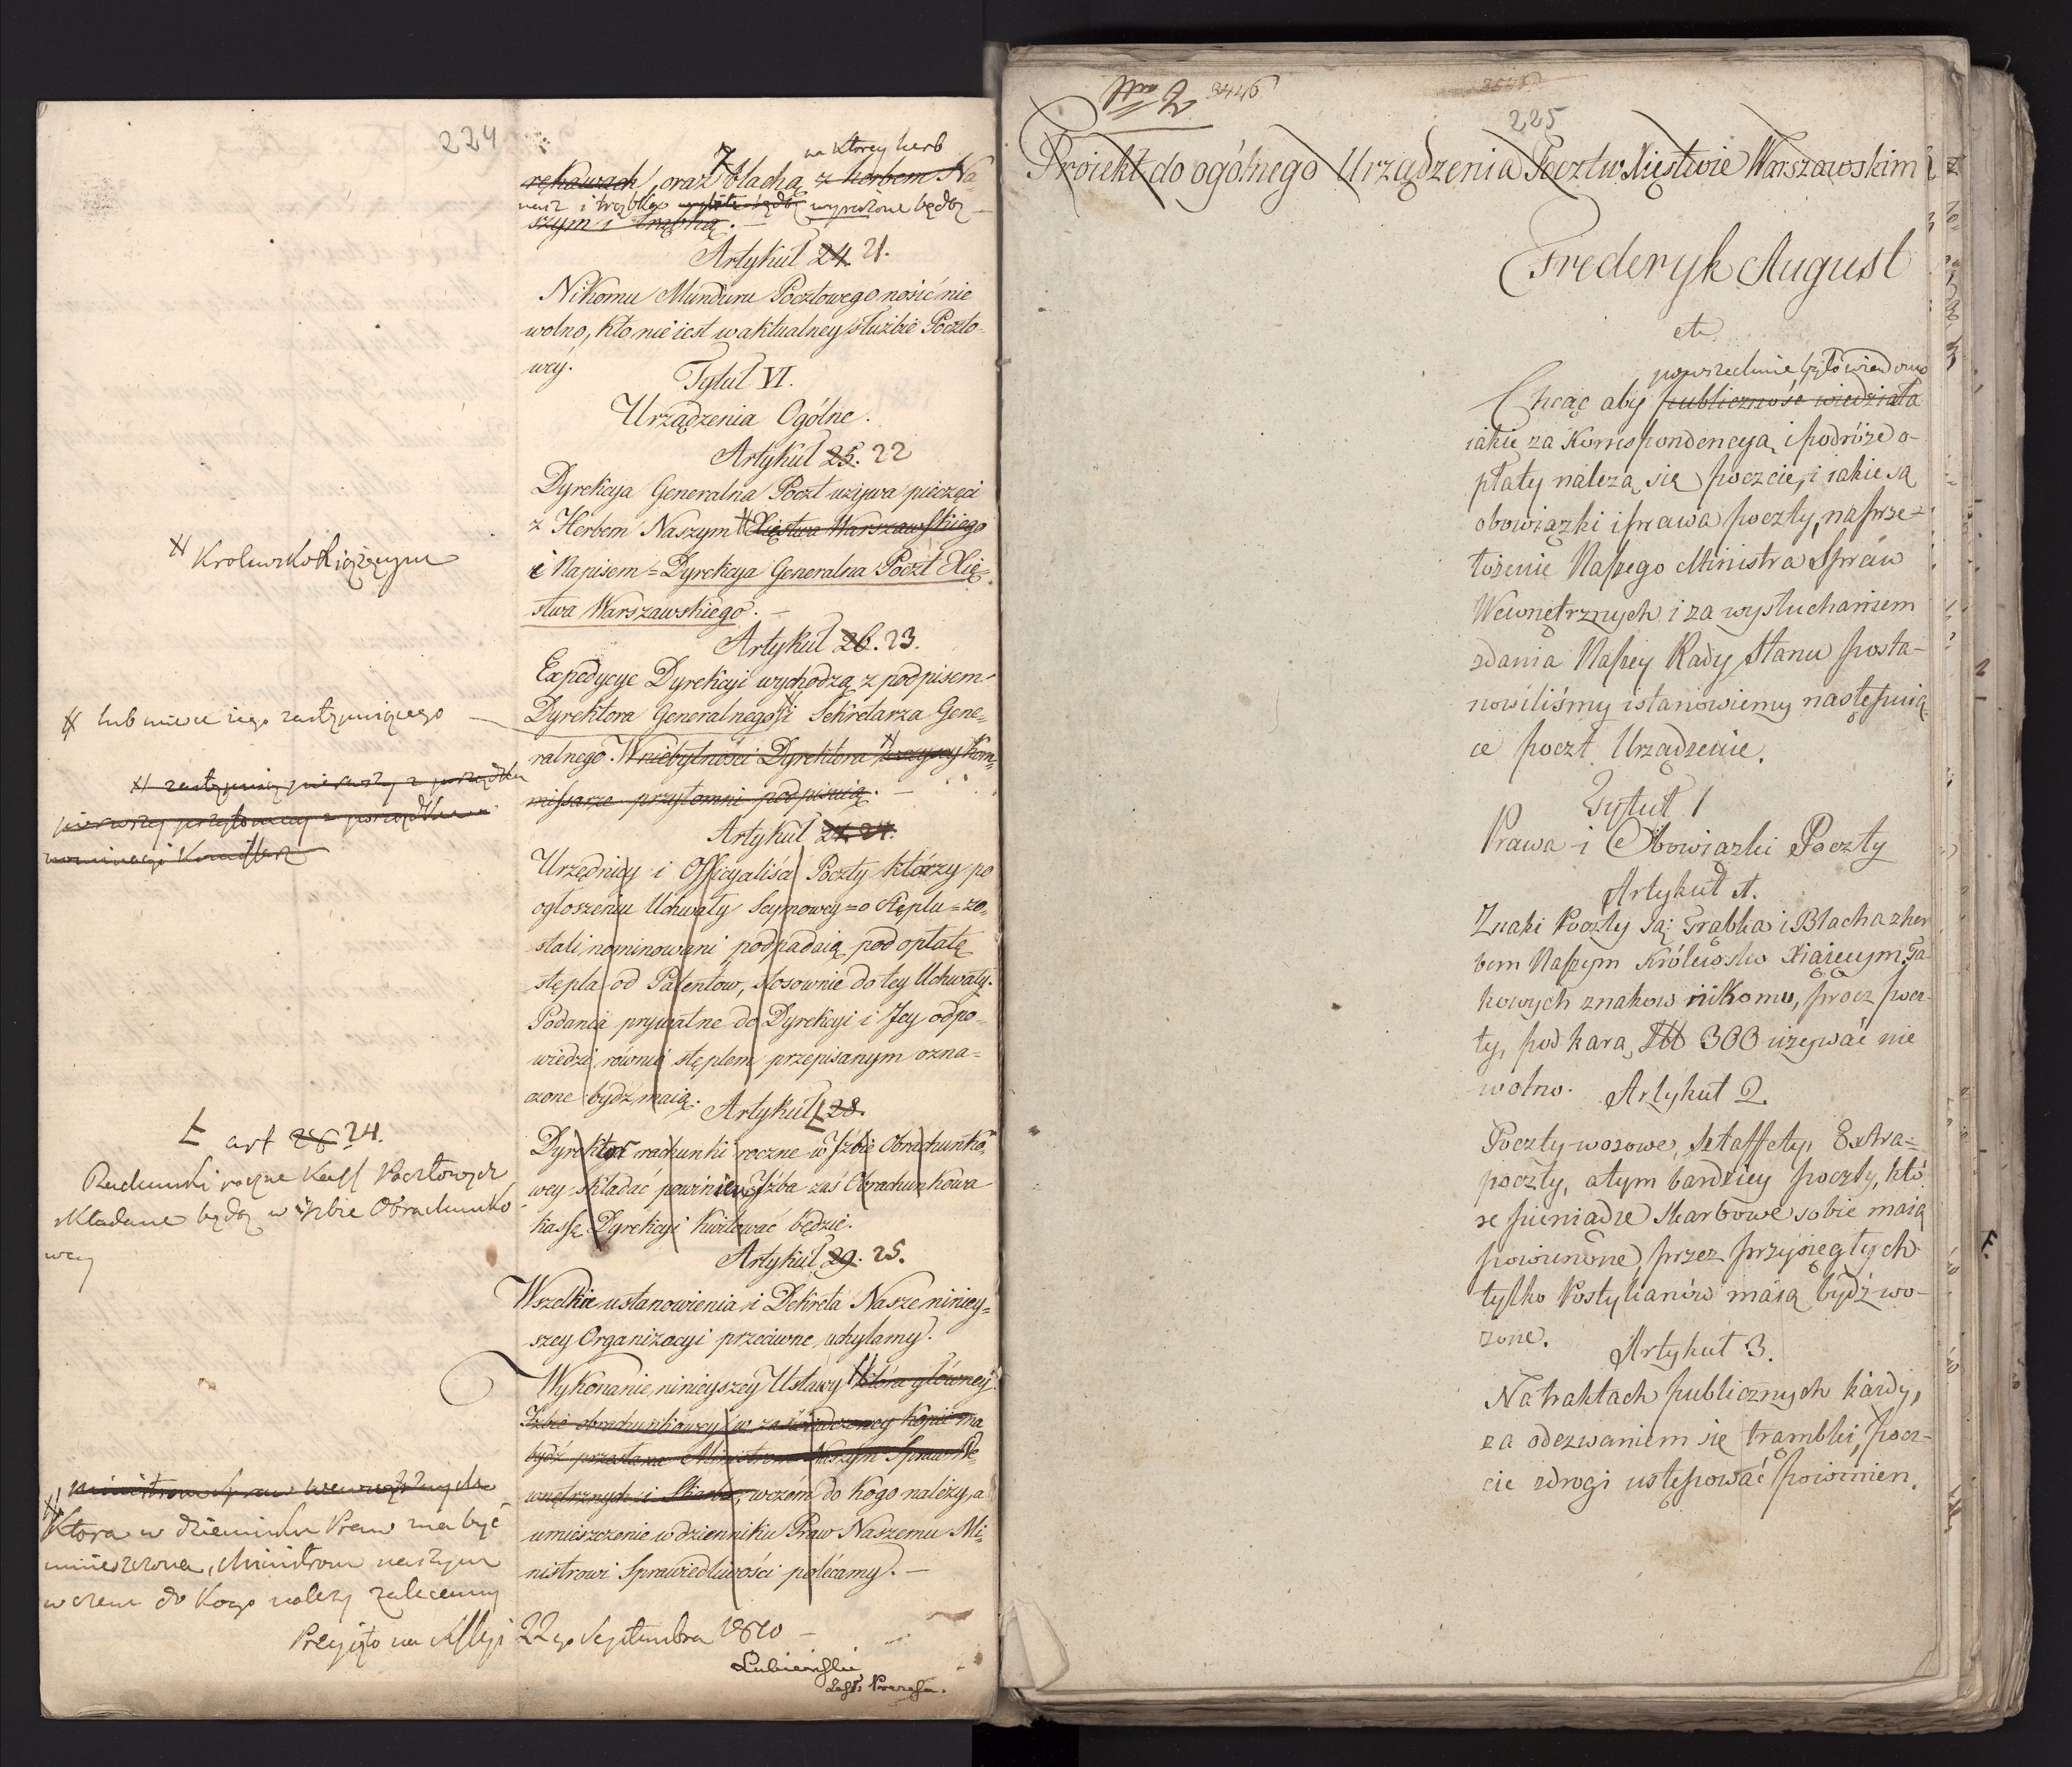 224
na ktorey herb
rękawach, oraz blachą z herbem Na-
nasz i trąbka wyrażone będą
szym i trąbką.
Artykuł 24. 21.
Nikomu Munduru Pocztowego nosić nie
wolno, kto nie iest w aktualney służbie Poczto-
wéy.
Tytuł VI.
Urządzenia Ogólne.
Artykuł 25. 22
Dyrekcya Generalna Poczt używa pieczęci
z Herbem Naszym Xięstwa Warszawskiego
Krolewsko Xiążęcym
i Napisem = Dyrekcya Generalna Poczt Xię-
stwa Warszawskiego.
Artykuł 26. 23.
Expedycye Dyrekcyi wychodzą z podpisem
Dyrektora Generalnego i Sekretarza Gene-
lub mieysce iego zastępuiącego
ralnego. W niebytności Dyrektora wszyscy Kom-
missarze przytomni podpisuią.
zastępuie pierwszy z porządku
pierwszy przytomny z porządku
nominacyi Kommissarz
Artykuł 27. 24.
Urzędnicy i Officyaliści Poczty którzy po
ogłoszeniu Uchwały Seymowey = o stęplu = zo-
stali nominowani podpadaią pod opłatę
stępla od Patentow, stosownie do tey Uchwały.
Podania prywatne do Dyrekcyi i Jey odpo-
wiedzi, równie stęplem przepisanym ozna-
czone bydź maią.
Artykuł 28.
Dyrektor rachunki roczne w Izbie Obrachunko-
wey składać powinien, Izba zaś Obrachunkowa
kassę Dyrekcyi kwitować będzie.
art 28 24.
Rachunki roczne Kass Pocztowych
składane będą w Izbie Obrachunko-
wey
Artykuł 29. 25.
Wszelkie ustanowienia i Dekreta Nasze niniey-
szey Organizacyi przeciwne, uchylamy.
Wykonanie ninieyszey Ustawy która główney
Izbie obrachunkowey w zaświadczoney kopii ma
bydź przesłana Ministrom Naszym Spraw We-
wnętrznych i Skarbu, w czem do kogo należy, a
umieszczenie w dzienniku Praw Naszemu Mi-
nistrowi Sprawiedliwości polécamy.
Ministrom Spraw wewnętrznych
ktora w dzienniku Praw ma być
umieszczona, Ministrom naszym
w czem do kogo należy zalecamy
Przyięto na Sessyi 22go Septembra 1810
Lubieński
Zast. Prezesa.
Nro 2 3446
225
Proiekt do ogólnego Urządzenia Poczt w Xięstwie Warszawskim
Frederyk August
etc.
powszechnie było wiadomo
Chcąc aby publiczność wiedziała
iakie za Korrespondencyą i podróże o-
płaty należą się poczcie, i iakie są
obowiązki i prawa poczty, na prze-
łożenie Naszego Ministra Spraw
Wewnętrznych i za wysłuchaniem
zdania Naszey Rady Stanu posta-
nowiliśmy i stanowiemy następuią-
ce poczt Urządzenie.
Tytuł 1
Prawa i Obowiązki Poczty
Artykuł 1.
Znaki Poczty są: Trąbka i Blacha z her
bem Naszym Królewsko Xiążęcym. Ta-
kowych znakow nikomu, procz pocz-
ty, pod karą 300 używać nie
wolno. Artykuł 2.
Poczty wozowe, Sztaffety, Extra-
poczty, a tym bardziey poczty, któ
re pieniądze skarbowe sobie maią
powierzone, przez przysięgłych
tylko Postylianów maią bydź wo-
zone.
Artykuł 3.
Na traktach publicznych każdy,
za odezwaniem się trąmbki, pocz-
cie z drogi ustępować powinien.